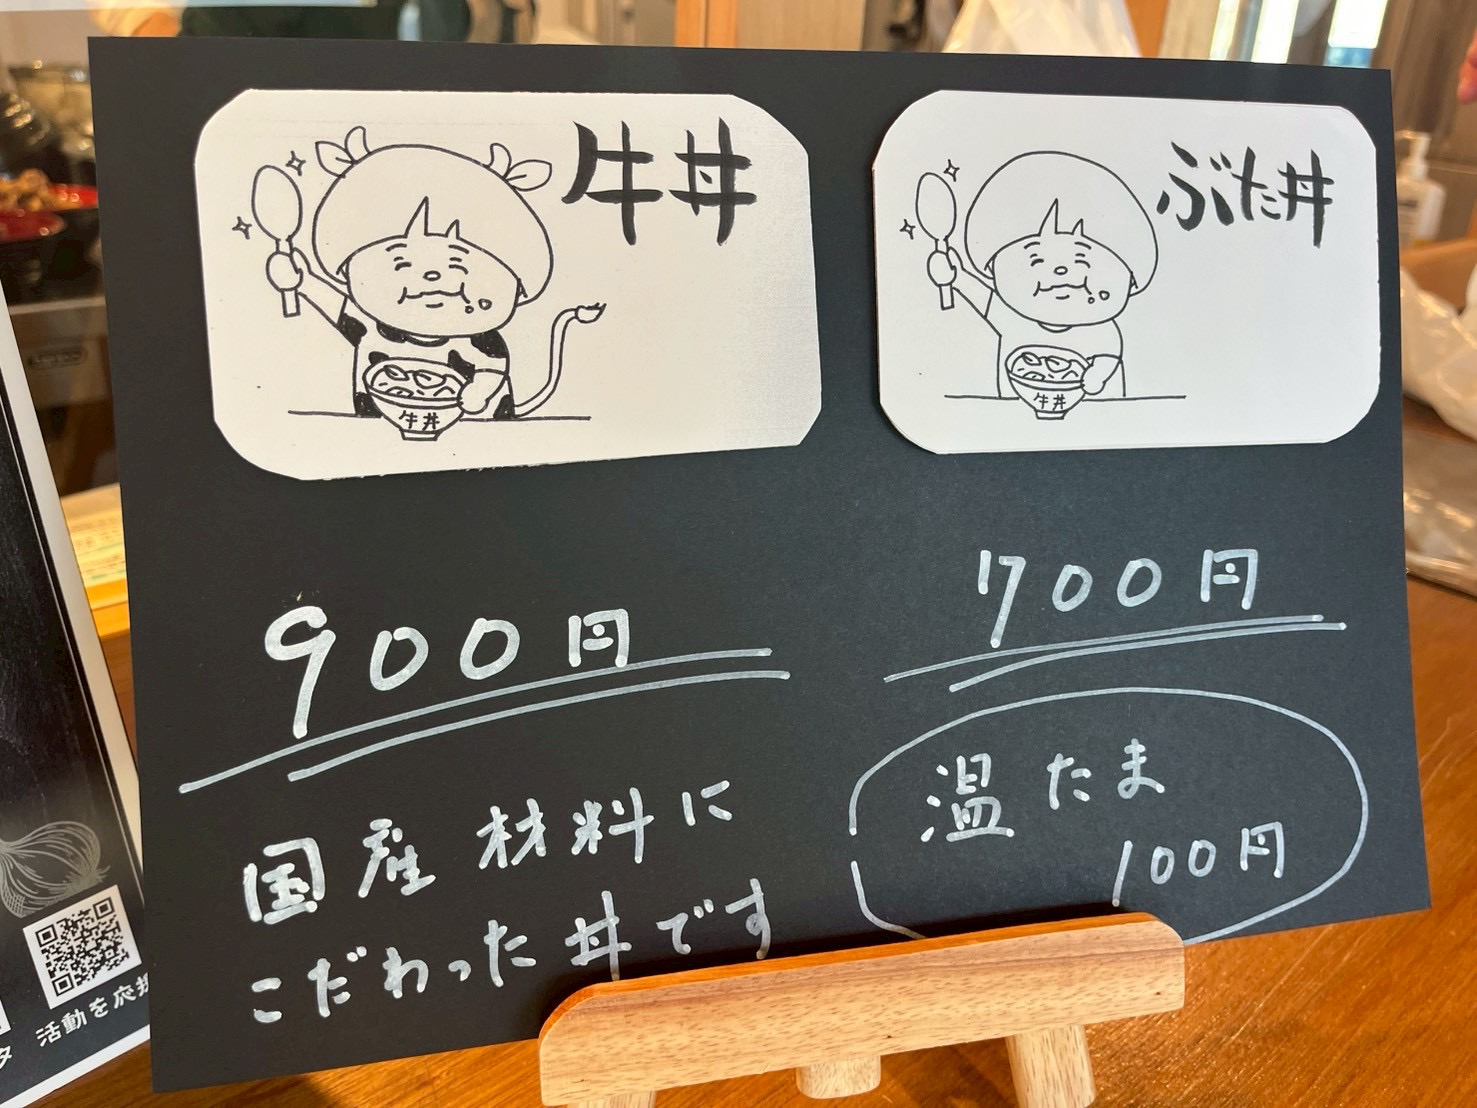 牛丼
牛丼
900円
国産材料に
こだわった丼です
ぶた丼
牛丼
700円
温たま
100円
活動を応援